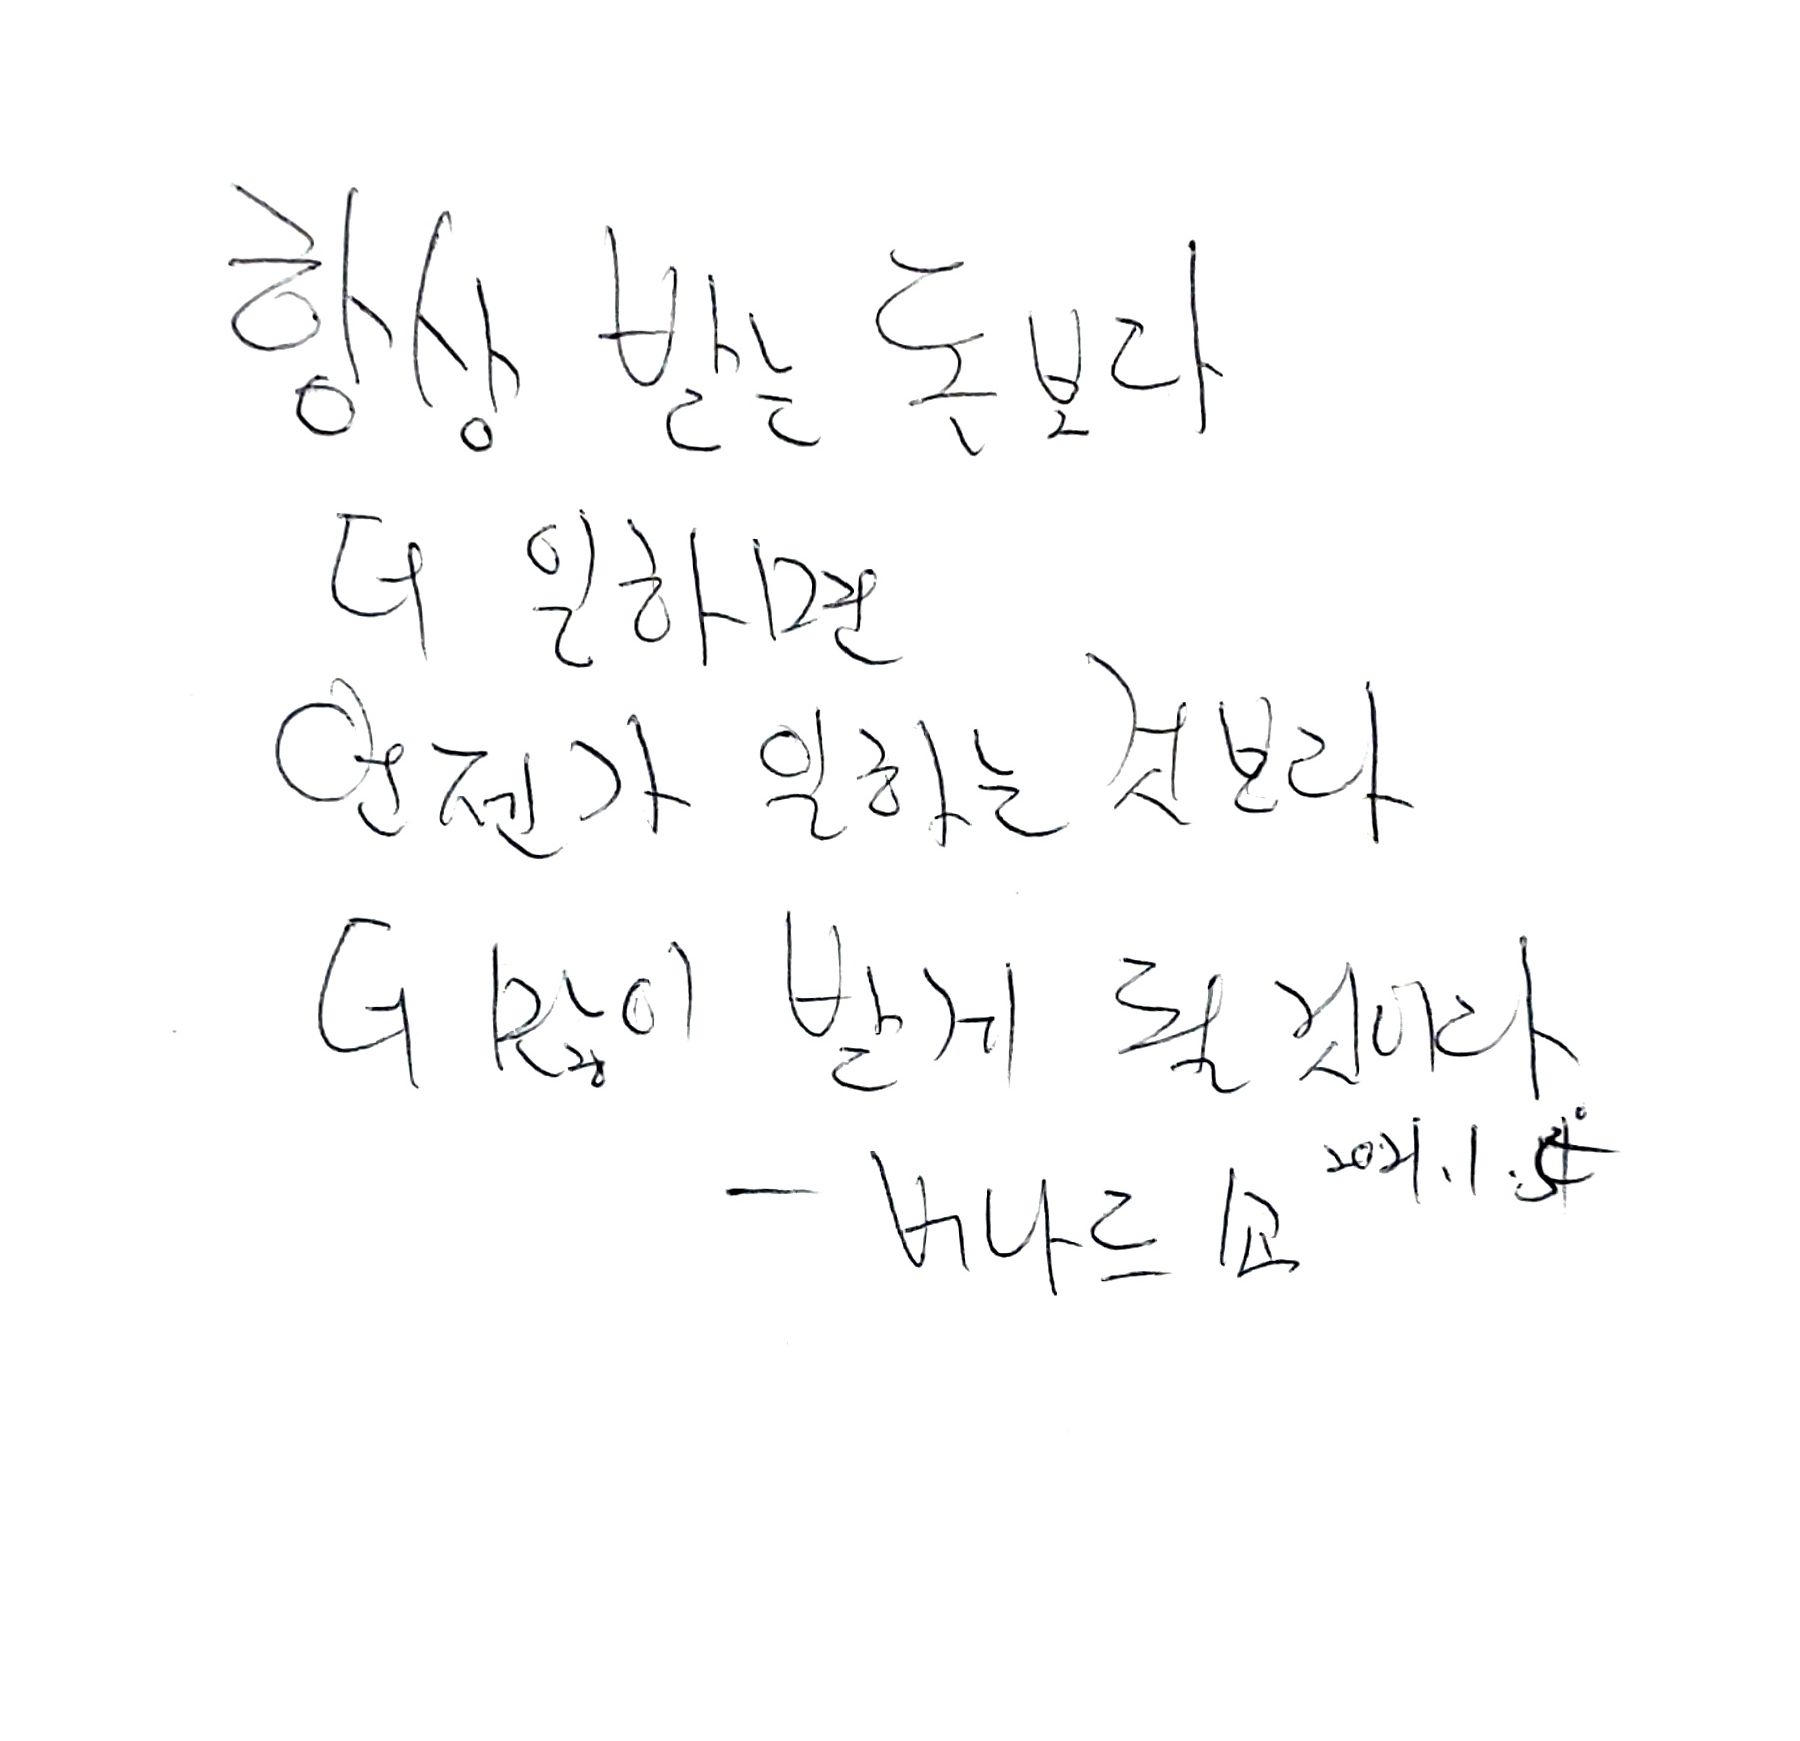 항상 받는 돈보다
더 일하면
언젠가 일하는 것보다
더 많이 받게 될 것이다
- 버나드 쇼
2021.1.